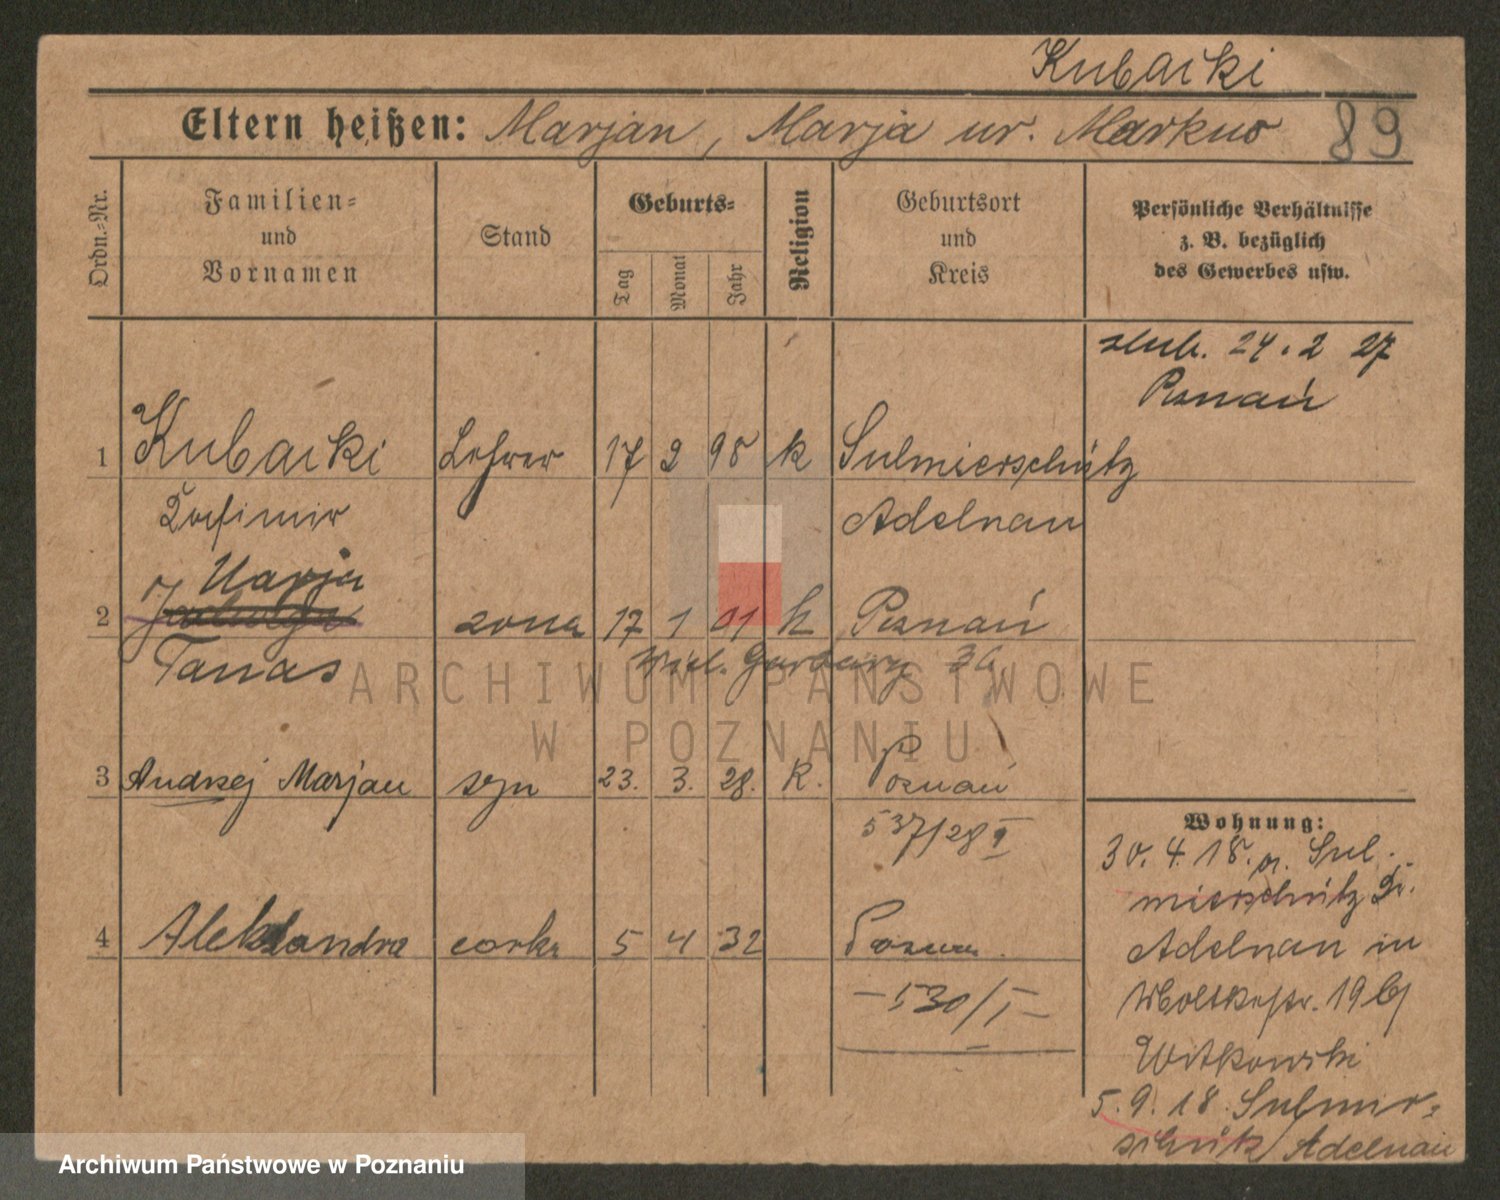 Kubacki
Eltern heißen: Marjan, Marja ur. Markus
89
Ordn.-Nr.
Familien-
und
Vornamen
Stand
Geburts-
Tag
Monat
Jahr
Religion
Geburtsort
und
Kreis
Persönliche Verhältnisse
z. B. bezüglich
des Gewerbes usw.
slub. 24.2 27
Poznań
1 Kubacki Lehrer 17 2 98 k Sulmierschütz
Kasimir Adelnau
Marja
2 żona 17 1 01 k Poznań
Tanas
Wiel. Garbary
3 Andrzej Marjan syn 23. 3. 28. K. Poznań
537/28
4 Aleksandra corka 5 4 32 Poznań
-530/I-
Wohnung:
30. 4. 18. a. Sul-
mierschütz Kr.
Adelnau in
Moltkestr. 19 b/
Witkowski
5. 9. 18 Sulmir-
schütz Adelnau
ARCHIWUM PAŃSTWOWE
W POZNANIU
Archiwum Państwowe w Poznaniu